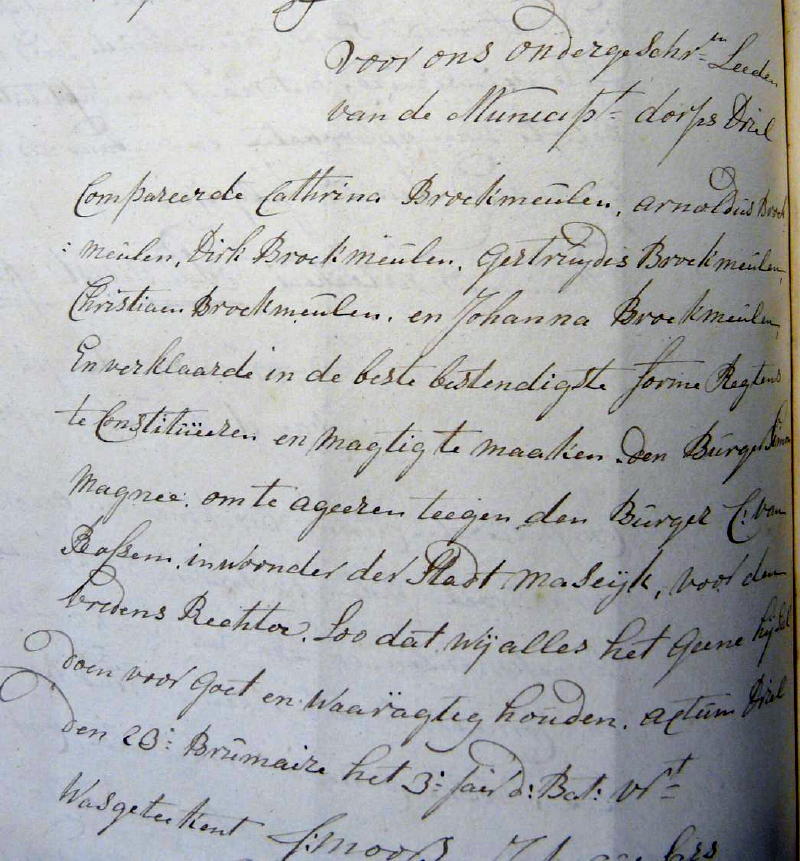 Voor ons ondergeschr:en Leeden
van de Municipt: dorps Driel
Compareerde Cathrina Broekmeulen, arnoldus Broek
: meulen, Dirk Broekmeulen, Gertruydis Broekmeulen,
Christiaen Broekmeulen, en Johanna Broekmeulen,
En verklaarde in de beste bestendigste forme Regtens
te Constitüeeren en magtig te maaken den Burger
Magnee. om te ageeren teegen den Burger C: van
inwoonder der Stadt Maseijk, voor den
vredens Rechter. Soo dat wij alles het geene hij sal
doen voor goet en Waaragteg houden. actum Driel
den 23: Brumaire het 3: Jair d: Bat: vrt
Was geteekent